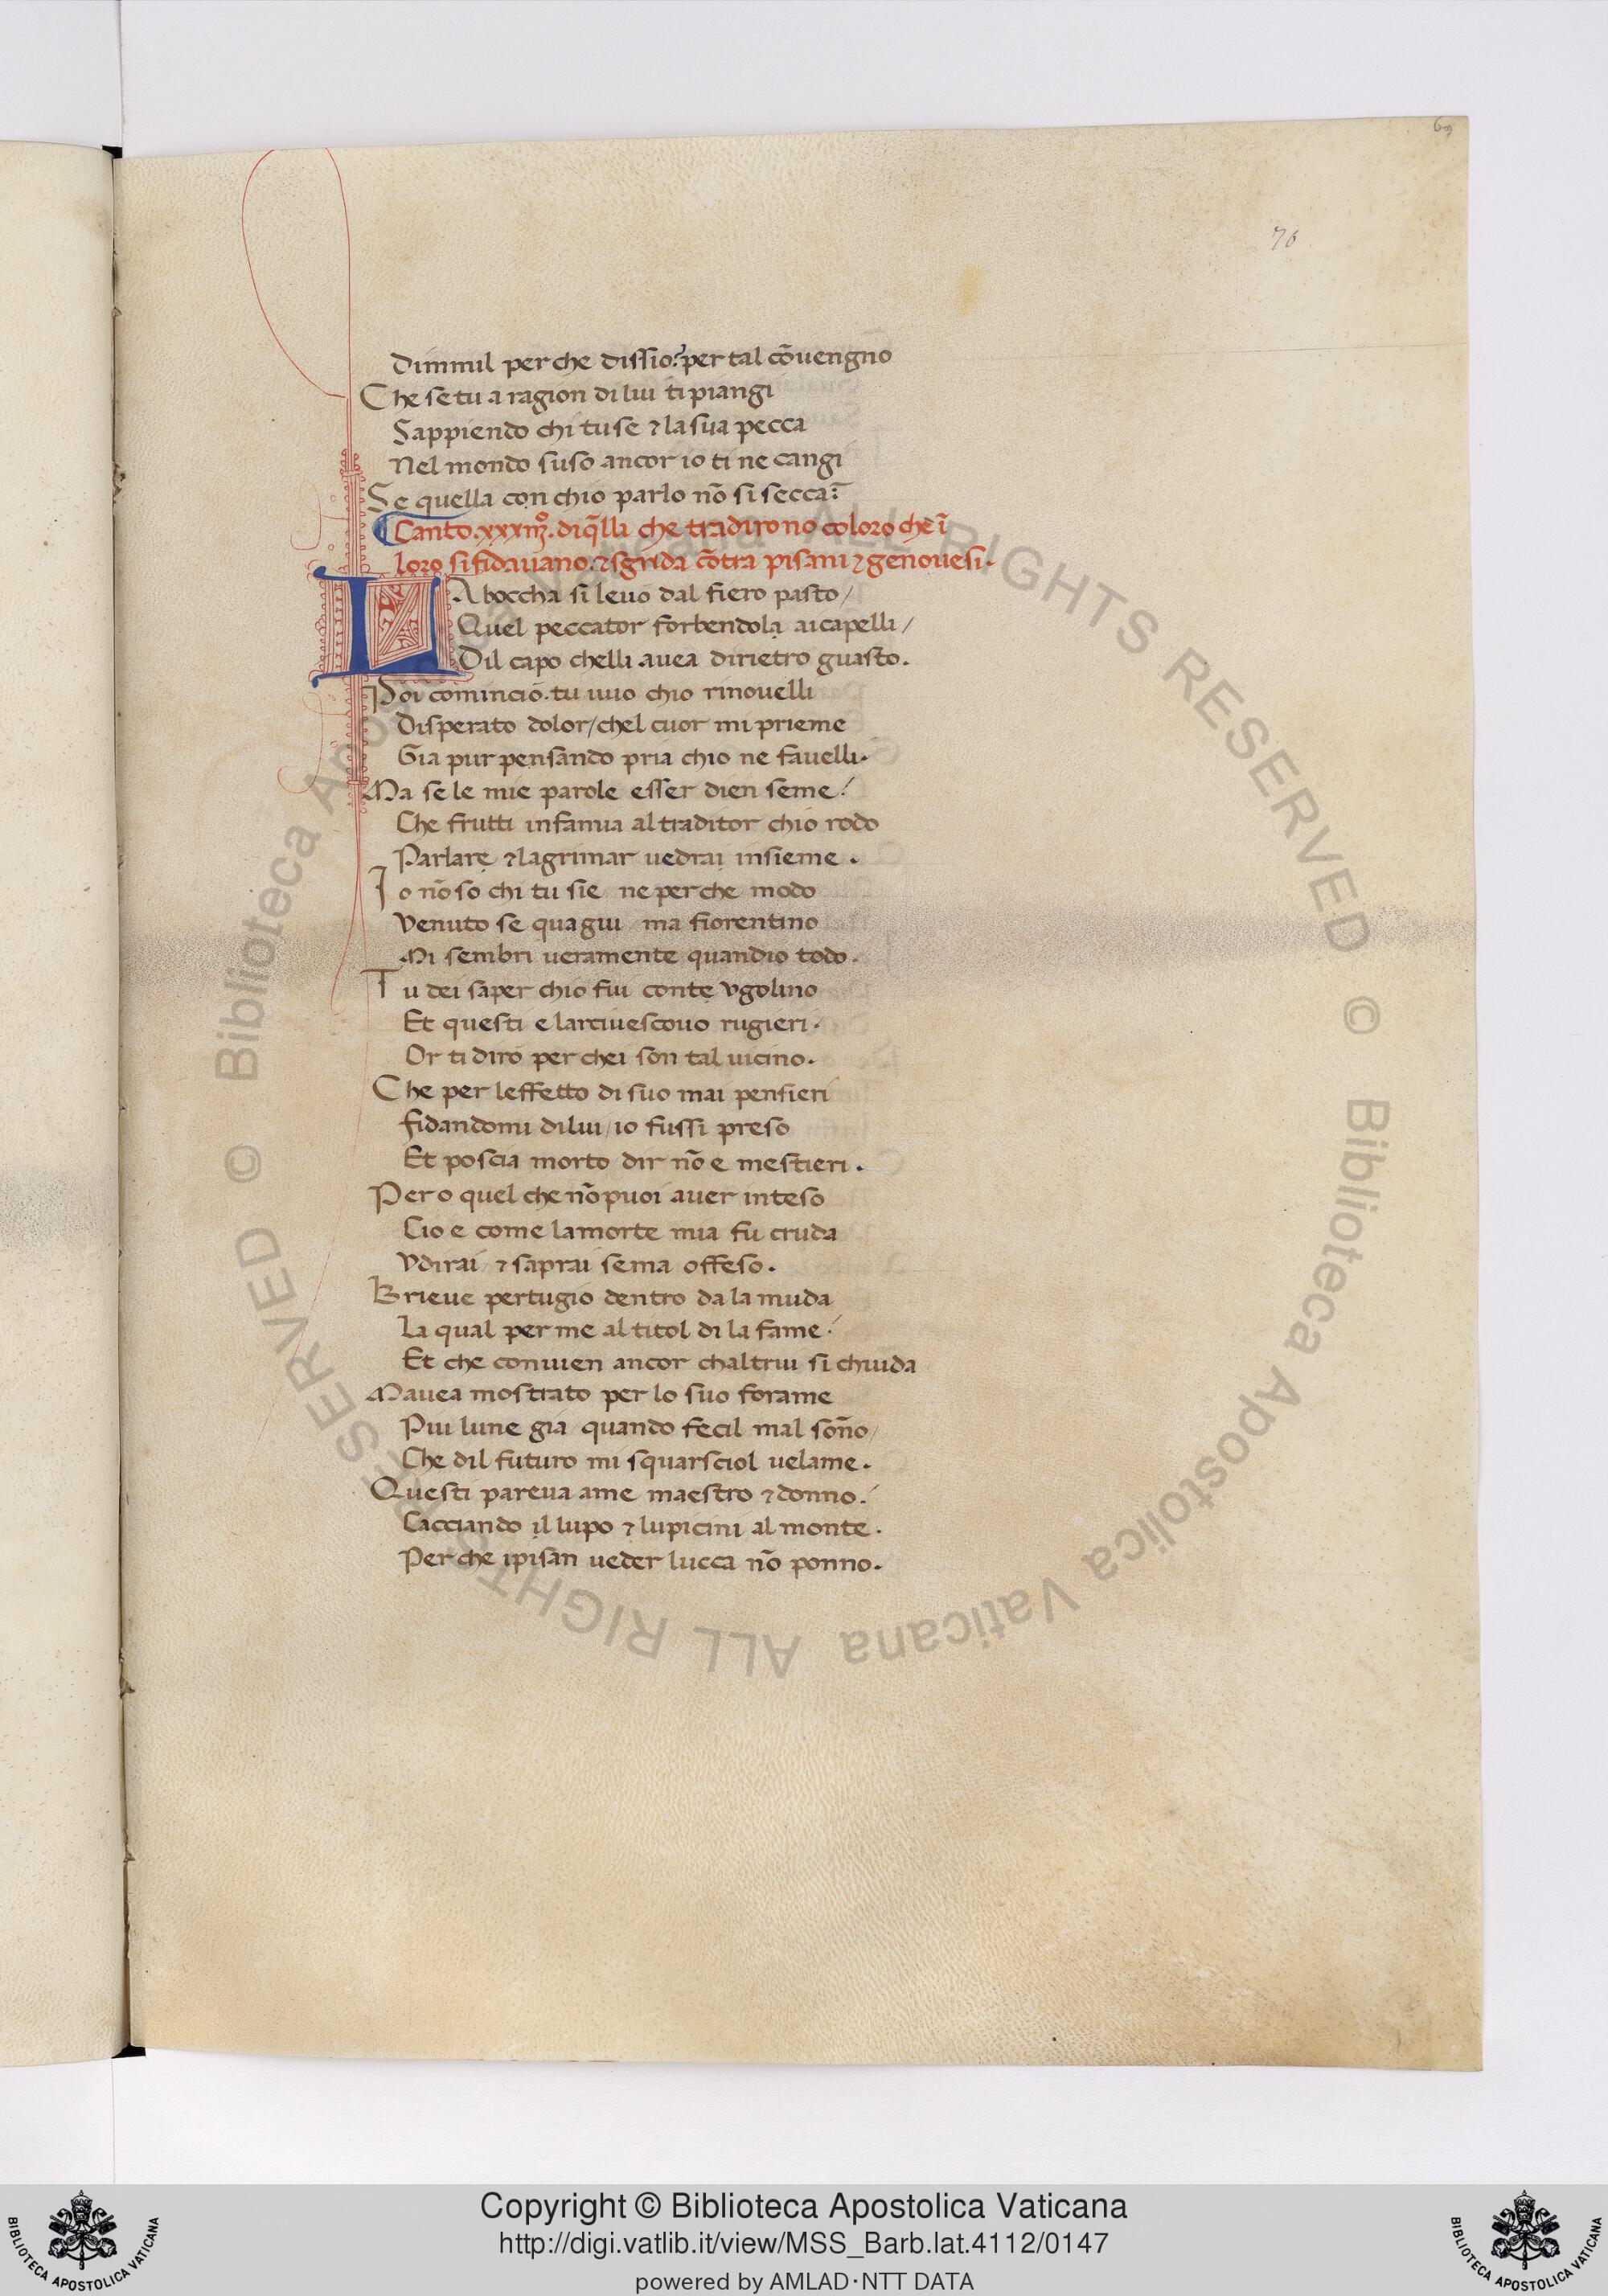 69
76
Dimmil perche dissio: per tal cōuengno
Che se tu a ragion di lui ti piangi
Sappiendo chi tu se ⁊ la sua pecca
Nel mondo suso ancor io ti ne cangi
Se quella con chio parlo nō si secca:
Canto .xxxiijº. di q̄lli che tradirono coloro che ī
loro si fidauano. ⁊ sgrida cōtra pisani ⁊ genouesi.
LA boccha si leuo dal fiero pasto/
Quel peccator forbendola ai capelli/
Dil capo chelli auea dirietro guasto.
Poi comincio. tu uuo chio rinouelli
Disperato dolor/chel cuor mi prieme
Gia pur pensando pria chio ne fauelli.
Ma se le mie parole esser dien seme
Che frutti infamia al traditor chio rodo
Parlare ⁊ lagrimar uedrai insieme.
Io nō so chi tu sie ne perche modo
Venuto se qua giu/ ma fiorentino
Mi sembri ueramente quandio todo.
Tu dei saper chio fui conte vgolino
Et questi e larciuescouo rugieri.
Or ti diro perchei son tal uicino.
Che per leffetto di suo mai pensieri
fidandomi di lui/io fussi preso
Et poscia morto dir nō e mestieri.
Pero quel che nō puoi auer inteso
Cio e come la morte mia fu cruda
Vdirai ⁊ saprai se ma offeso.
Brieue pertugio dentro da la muda
La qual per me al titol di la fame
Et che conuien ancor chaltrui si chiuda
Mauea mostrato per lo suo forame
Piu lune gia quando fecil mal soñο/
Che dil futuro mi squarsciol uelame.
Questi pareua a me maestro ⁊ donno.
Cacciando il lupo ⁊ lupicini al monte.
Perche i pisan ueder lucca nō ponno.
© Biblioteca Apostolica Vaticana ALL RIGHTS RESERVED © Biblioteca Apostolica Vaticana ALL RIGHTS RESERVED
Copyright © Biblioteca Apostolica Vaticana
http://digi.vatlib.it/view/MSS_Barb.lat.4112/0147
powered by AMLAD·NTT DATA
BIBLIOTECA APOSTOLICA VATICANA
BIBLIOTECA APOSTOLICA VATICANA